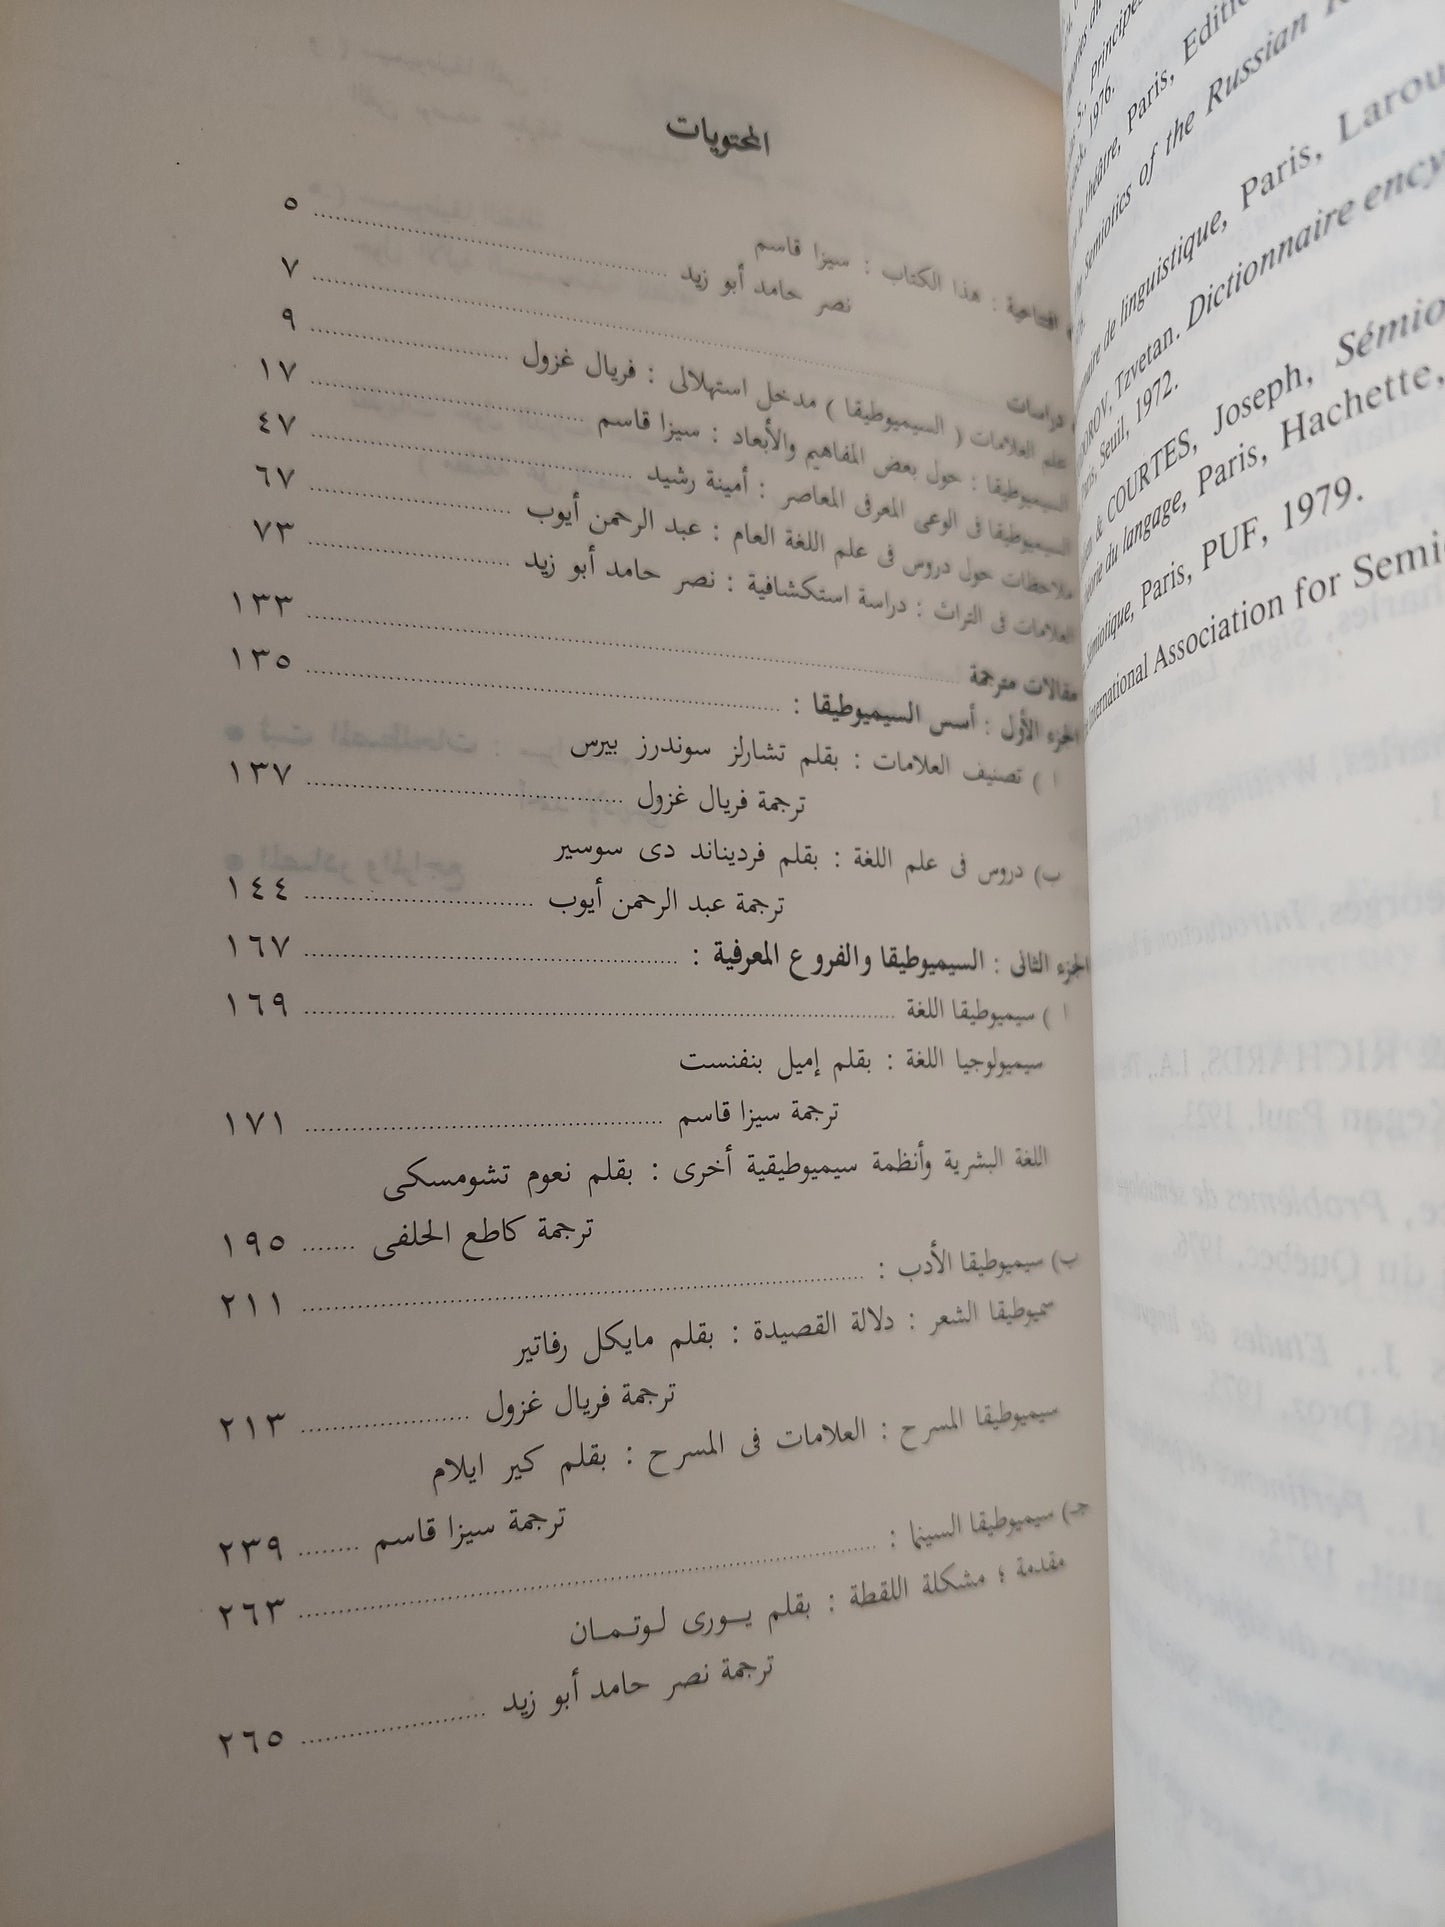 المحتويات
افتتاحية : هذا الكتاب : سيزا قاسم
نصر حامد أبو زيد ٥
دراسات ٧
علم العلامات ( السيميوطيقا ) مدخل استهلالى : فريال غزول ٩
السيميوطيقا : حول بعض المفاهيم والأبعاد : سيزا قاسم ١٧
السيميوطيقا فى الوعى المعرفى المعاصر : أمينة رشيد ٤٧
ملاحظات حول دروس فى علم اللغة العام : عبد الرحمن أيوب ٦٧
العلامات فى التراث : دراسة استكشافية : نصر حامد أبو زيد ٧٣
مقالات مترجمة ١٣٣
الجزء الأول : أسس السيميوطيقا : ١٣٥
ا ) تصنيف العلامات : بقلم تشارلز سوندرز بيرس
ترجمة فريال غزول ١٣٧
ب) دروس فى علم اللغة : بقلم فرديناند دى سوسير
ترجمة عبد الرحمن أيوب ١٤٤
الجزء الثانى : السيميوطيقا والفروع المعرفية : ١٦٧
ا ) سيميوطيقا اللغة ١٦٩
سيميولوجيا اللغة : بقلم إميل بنفنست
ترجمة سيزا قاسم ١٧١
اللغة البشرية وأنظمة سيميوطيقية أخرى : بقلم نعوم تشومسكى
ترجمة كاطع الحلفى ١٩٥
ب) سيميوطيقا الأدب : ٢١١
سميوطيقا الشعر : دلالة القصيدة : بقلم مايكل رفاتير
ترجمة فريال غزول ٢١٣
سيميوطيقا المسرح : العلامات فى المسرح : بقلم كير ايلام
ترجمة سيزا قاسم ٢٣٩
جـ) سيميوطيقا السينما : ٢٦٣
مقدمة ؛ مشكلة اللقطة : بقلم يــورى لـوتـمـان
ترجمة نصر حامد أبو زيد ٢٦٥
S., Principes
1976.
théâtre, Paris,
Semiotics of the Russian
de linguistique, Paris,
Tzvetan. Dictionnaire
Seuil, 1972.
& COURTES, Joseph,
du langage, Paris, Hachette,
Paris, PUF, 1979.
International Association for